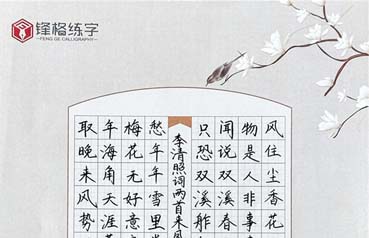 锋格练字
—FENG GE CALLIGRAPHY—
风住尘香花
物是人非事
闻说双溪春
只恐双溪舴
李清照词两首来
愁年年雪里
梅花无好意
年海角天涯
取晚来风势